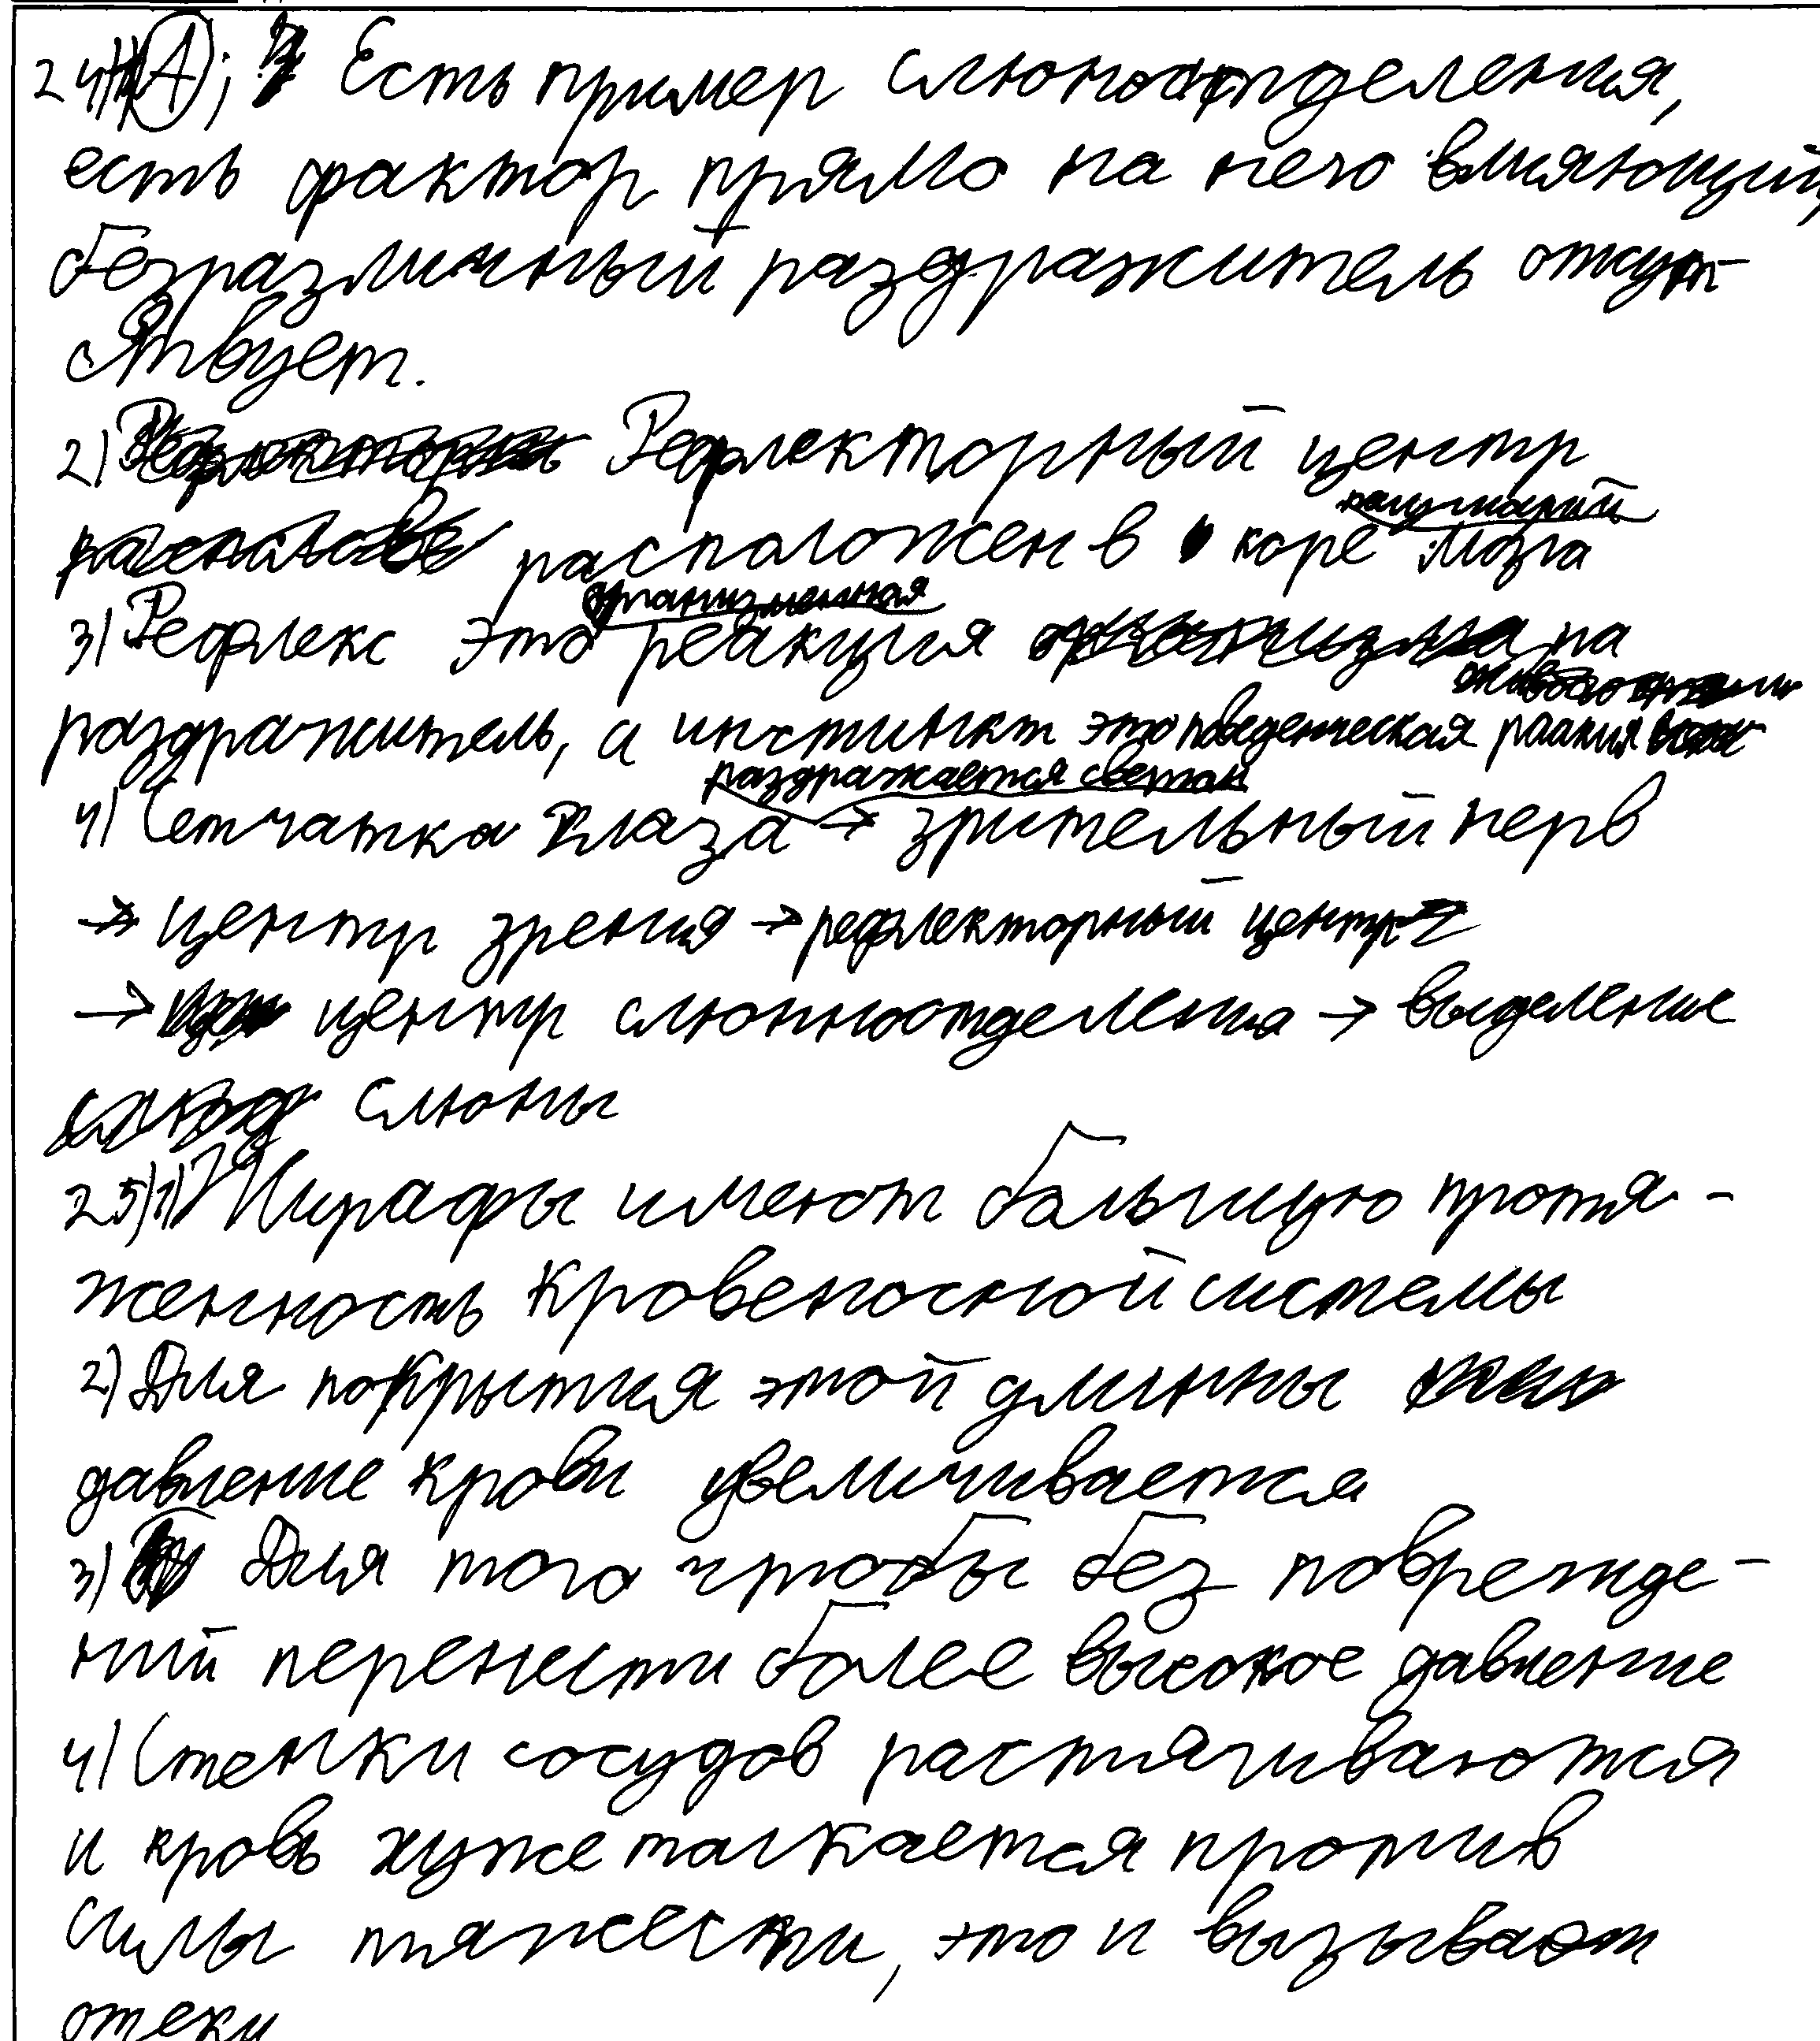 24)1)А); Есть пример слюноотделения,
есть фактор прямо на него влияющий,
безразличный раздражитель отсут-
ствует.
2) Рефлекторный центр
расположен в коре полушарий мозга
3) Рефлекс это организменная реакция на
раздражитель, а инстинкт это поведенческая
4) Сетчатка глаза раздражается светом → зрительный нерв
→ центр зрения → рефлекторный центр
→ центр слюнноотделения → выделение
слюны
25)1) Жирафы имеют большую протя-
женность кровеносной системы
2) Для покрытия этой длинны
давление крови увеличивается
3) Для того чтобы без поврежде-
ний перенести более высокое давление
4) Стенки сосудов растягиваются
и кровь хуже толкается против
силы тяжести, это и вызывает
отеки